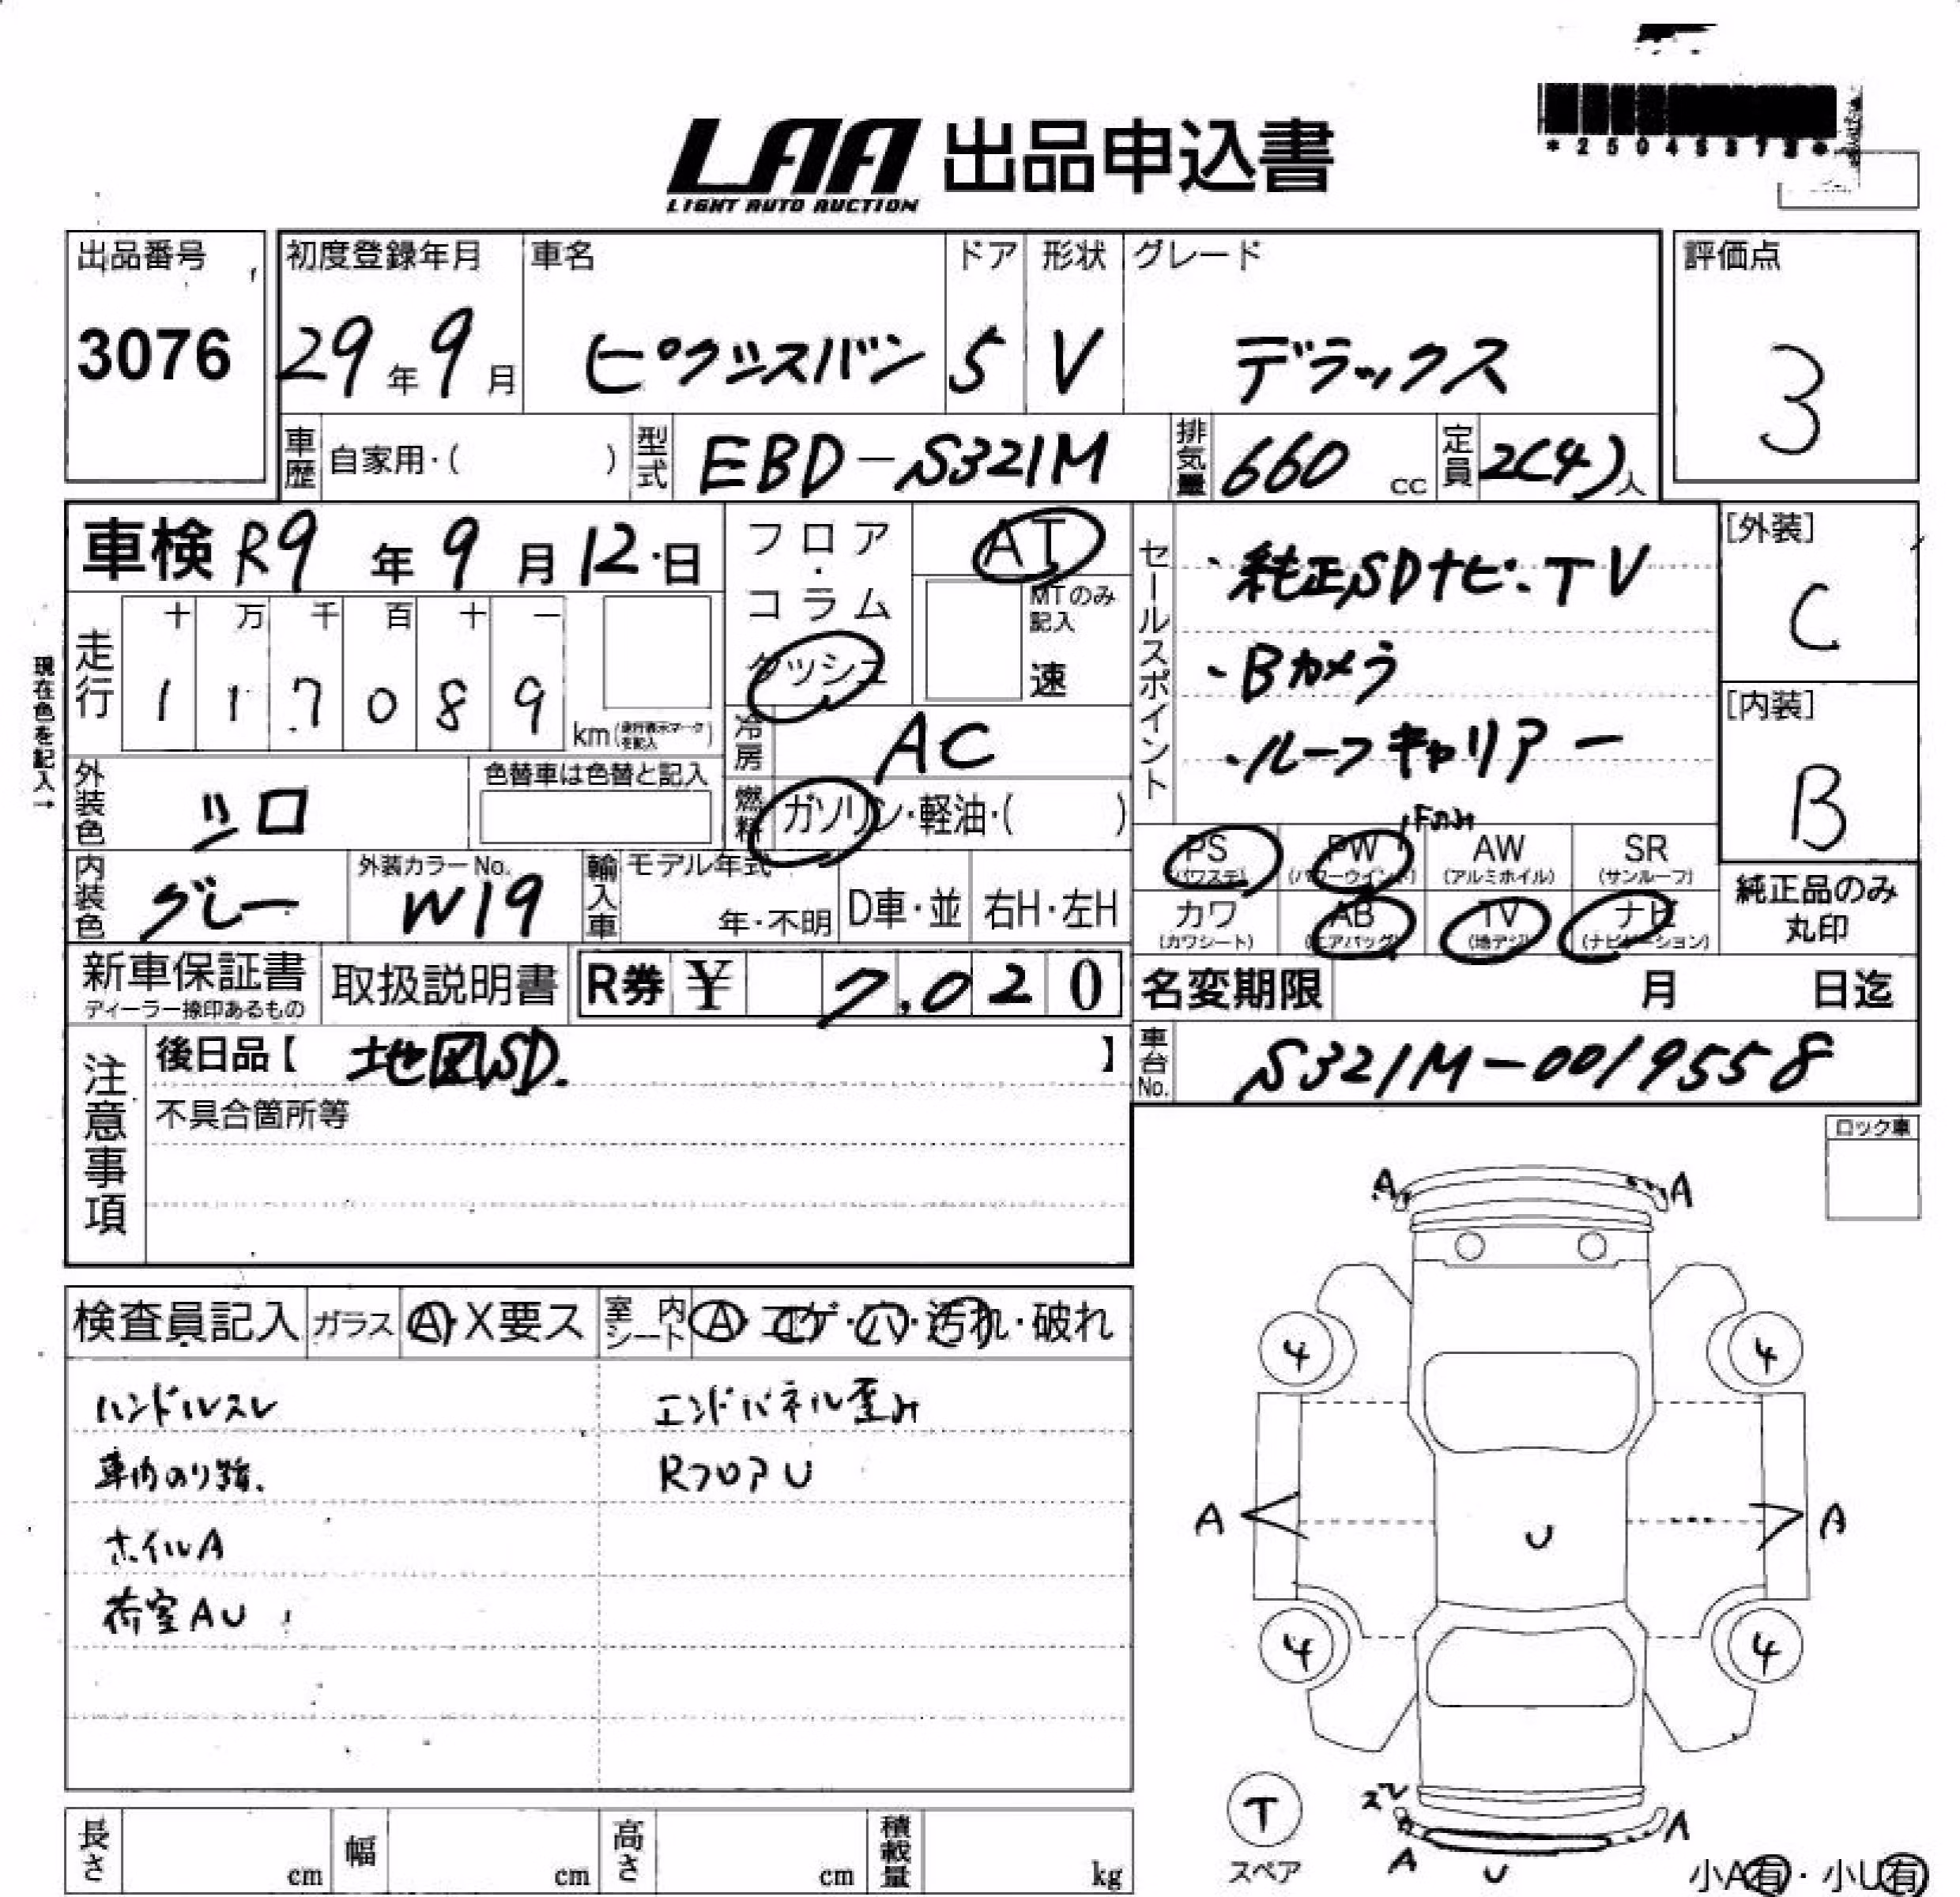 LAA 出品申込書
LIGHT AUTO AUCTION
出品番号
3076
初度登録年月
29年9月
車名
ピクシスバン
ドア
5
形状
V
グレード
デラックス
評価点
3
車歴 自家用・( )
型式 EBD-S321M
排気量 660 cc
定員 2(4)人
車検 R9年9月12日
フロア・コラム
ダッシュ
AT
MTのみ記入
速
セールスポイント
・純正SDナビ.TV
・Bカメラ
・ルーフキャリアー
[外装]
C
[内装]
B
現在色を記入→
走行
十 万 千 百 十 一
1 1 7 0 8 9
km
冷房 AC
外装色 シロ
色替車は色替と記入
燃料 ガソリン・軽油・( )
Fのみ
PS PW AW SR
(パワステ) (パワーウインド) (アルミホイル) (サンルーフ)
カワ AB TV ナビ
(カワシート) (エアバッグ) (地デジ) (ナビゲーション)
純正品のみ丸印
内装色 グレー
外装カラーNo.
W19
輸入車
モデル年式
年・不明
D車・並
右H・左H
新車保証書
ディーラー捺印あるもの
取扱説明書
R券 ¥ 7,020
名変期限 月 日迄
注意事項
後日品【 地図SD. 】
不具合箇所等
車台No. S321M-0019558
ロック車
検査員記入
ガラス A・X要ス
室内シート A・コゲ・穴・汚れ・破れ
ハンドルスレ
車内のり跡.
ホイルA
荷室AU
エンドパネル歪み
RフロアU
A A
4 4
A U A
4 4
T
スペア
ズレ
A
A U
小A有・小U有
長さ cm
幅 cm
高さ cm
積載量 kg